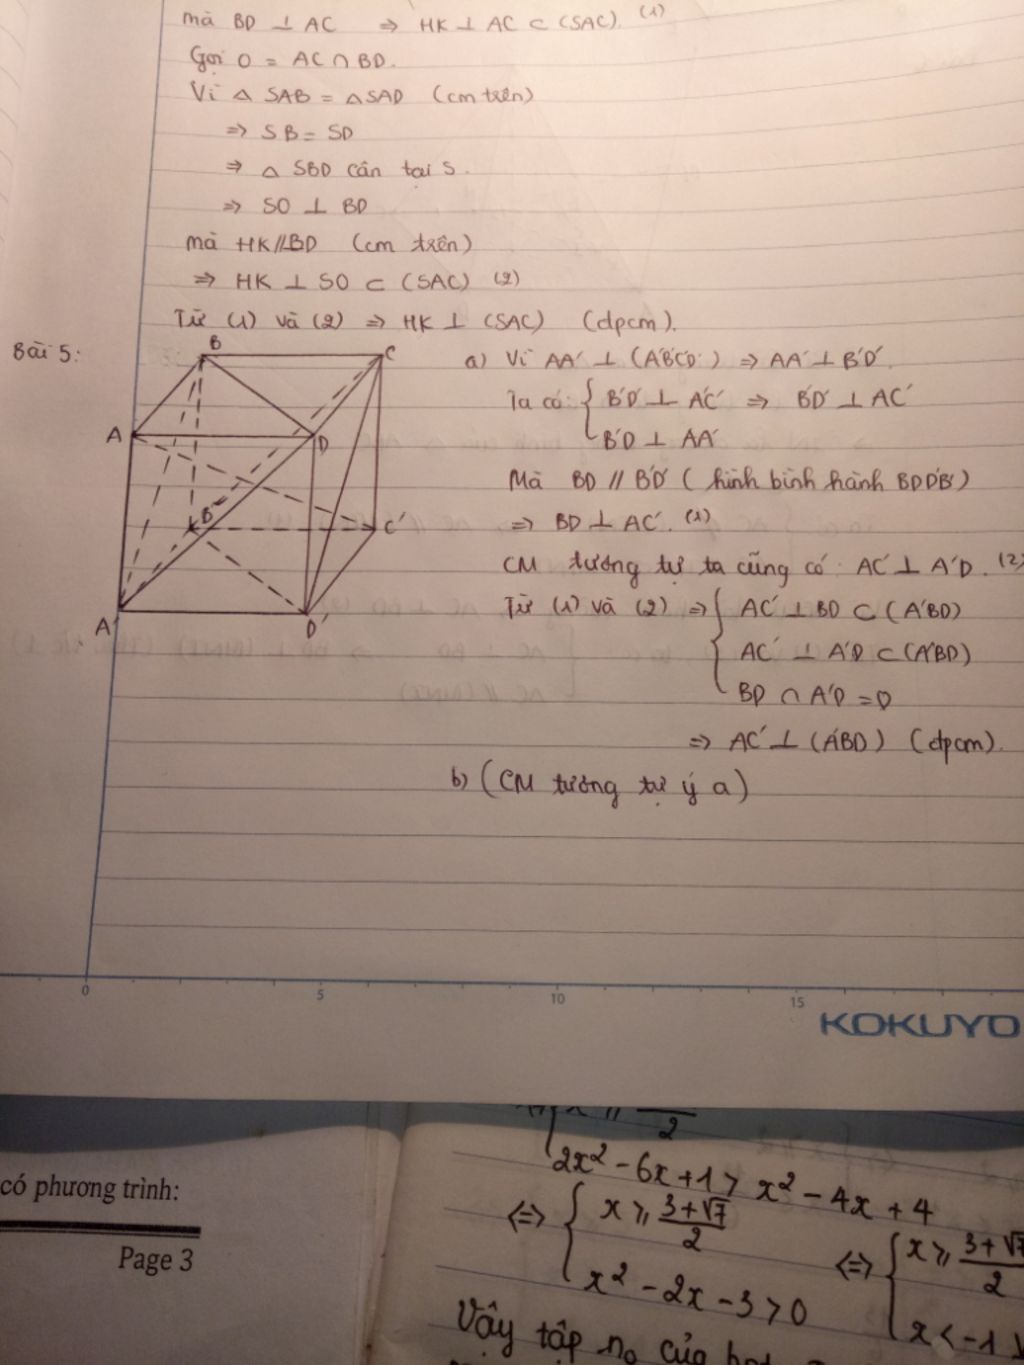 mà BD ⊥ AC ⇒ HK ⊥ AC ⊂ (SAC). (1)
Gọi O = AC ∩ BD.
Vì △ SAB = △SAD (cm trên)
⇒ SB = SD
⇒ △ SBD cân tại S.
⇒ SO ⊥ BD
mà HK//BD (cm trên)
⇒ HK ⊥ SO ⊂ (SAC) (2)
Từ (1) và (2) ⇒ HK ⊥ (SAC) (dpcm).
Bài 5:
B
C
A
D
B'
C'
A'
D'
a) Vì AA' ⊥ (A'B'C'D') ⇒ AA' ⊥ B'D'.
Ta có: { B'D' ⊥ A'C' ⇒ B'D' ⊥ AC'
B'D' ⊥ AA'
Mà BD // B'D' (hình bình hành BDD'B')
⇒ BD ⊥ AC'. (1)
CM tương tự ta cũng có: AC' ⊥ A'D. (2)
Từ (1) và (2) ⇒ { AC' ⊥ BD ⊂ (A'BD)
AC' ⊥ A'D ⊂ (A'BD)
BD ∩ A'D = D
⇒ AC' ⊥ (A'BD) (dpcm).
b) (CM tương tự ý a)
0 5 10 15
KOKUYO
có phương trình:
Page 3
2
2x² - 6x + 1 > x² - 4x + 4
⇔ { x ⩾ 3+√7 / 2 ⇔ { x ⩾ 3+√7 / 2
x² - 2x - 3 > 0
x < -1
Vậy tập no của